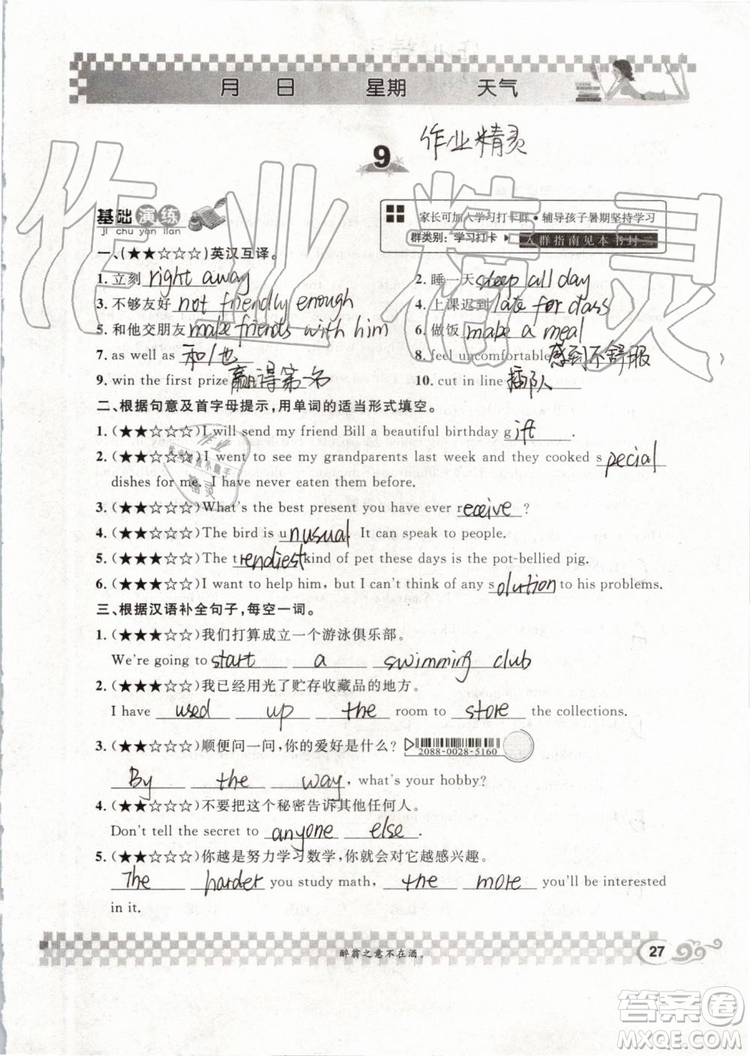 月 日 星期 天气
9 作业精灵
基础演练
ji chu yan lian
家长可加入学习打卡群·辅导孩子暑期坚持学习
群类别：学习打卡 入群指南见本书封二
一、(★★☆☆☆)英汉互译。
1. 立刻 right away 2. 睡一天 sleep all day
3. 不够友好 not friendly enough 4. 上课迟到 late for class
5. 和他交朋友 make friends with him 6. 做饭 make a meal
7. as well as 和/也 8. feel uncomfortable 感到不舒服
9. win the first prize 赢得第一名 10. cut in line 插队
二、根据句意及首字母提示，用单词的适当形式填空。
1. (★★☆☆☆)I will send my friend Bill a beautiful birthday gift.
2. (★★☆☆☆)I went to see my grandparents last week and they cooked special
dishes for me. I have never eaten them before.
3. (★★☆☆☆)What's the best present you have ever receive?
4. (★★☆☆☆)The bird is unusual. It can speak to people.
5. (★★☆☆☆)The trendiest kind of pet these days is the pot-bellied pig.
6. (★★☆☆☆)I want to help him, but I can't think of any solution to his problems.
三、根据汉语补全句子，每空一词。
1. (★★☆☆☆)我们打算成立一个游泳俱乐部。
We're going to start a swimming club
2. (★★☆☆☆)我已经用光了贮存收藏品的地方。
I have used up the room to store the collections.
3. (★★☆☆☆)顺便问一问，你的爱好是什么？ 2088-0028-5160
By the way, what's your hobby?
4. (★★☆☆☆)不要把这个秘密告诉其他任何人。
Don't tell the secret to anyone else.
5. (★★☆☆☆)你越是努力学习数学，你就会对它越感兴趣。
The harder you study math, the more you'll be interested
in it.
醉翁之意不在酒。
27
作业精灵
答案圈
MXQE.COM